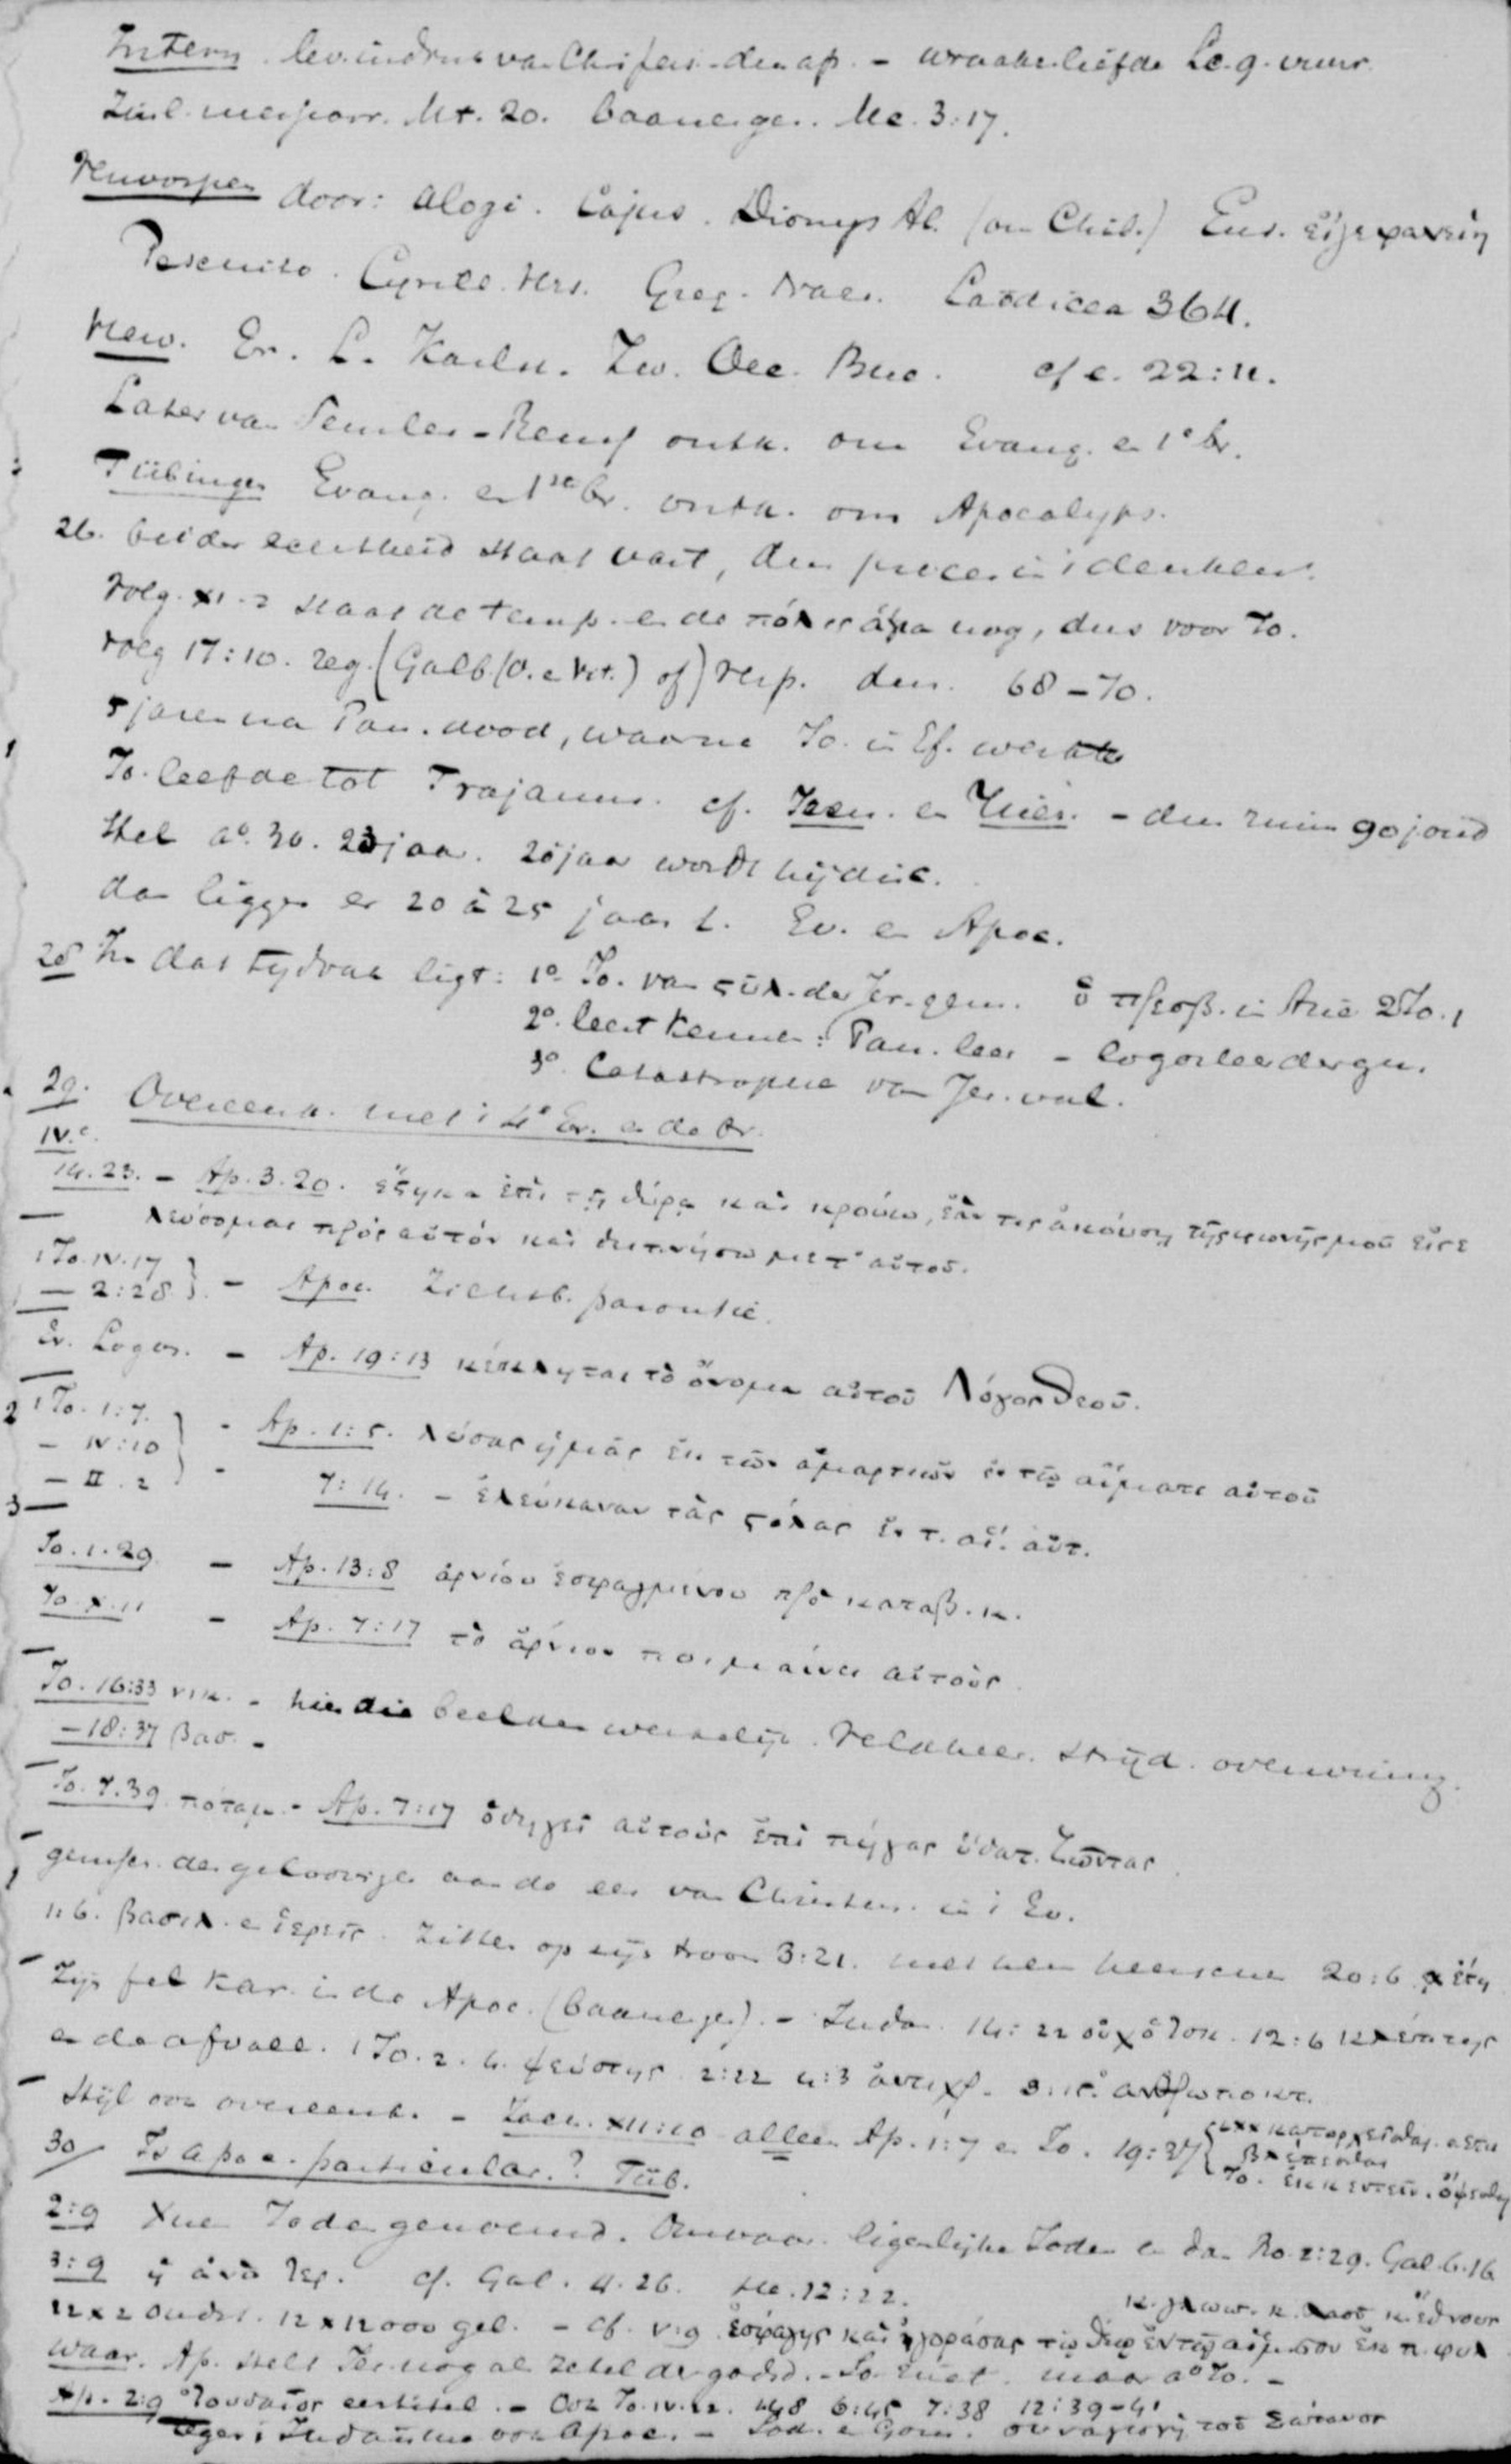 Intern. lev. indruk van Chr. pers. den ap. - wraak en liefde Lc. 9. vuur
Mt. 20. boanerges. Mc. 3:17.
Verworpen door: Alogi. Cajus. Dionys Al. (om Chil.) Eus. εἴγε φανείη
Peschito. Cyrill. Hrs. Greg. Naz. Laodicea 364.
Herv. Er. L. Karlst. Zw. Oec. Buc. cf c. 22:11.
Later van Semler - ontk. om Evang. en 1e br.
Tübingen Evang. en 1ste br. ontk. om Apocalyps.
26. beider echtheid staat vast, den
Volg. XI-2 staat de temp. en de πόλις ἁγία nog, dus voor 70.
Volg 17:10. reg. (Galb (O. e Vit.) of) Vesp. dus. 68-70.
5 jaren na Pau. dood, waarna Jo. in Ef. werkte
Jo. leefde tot Trajanus. cf. Iren. en Hier. - dus ruim 90 jr oud
Stel ao. 30. 20 jaar. 20 jaar wordt hij disc.
dan liggen er 20 à 25 jaar t. Ev. en Apoc.
28 In dat tijdvak ligt: 1o. Jo. van στύλ. der Jer. gem. ὁ πρεσβ. in Azië 2 Jo. 1
2o. leert kennen: Pau. leer - logosleer dergn.
3o. Catastrophe van Jer. val.
29. Overeenk. met i 4e Ev. en de br.
IV. e
14.23. - Ap. 3.20. ἕστηκα ἐπὶ τὴ θύρα καὶ κρούω, ἐάν τις ἀκούση τῆς φωνῆς μου εἰσε
λεύσομαι πρὸς αὐτὸν καὶ δειπνήσω μετ' αὐτοῦ.
1 Jo. IV. 17
— 2:28 } - Apoc. Zichtb. parousie.
Ev. Logos. - Ap. 19:13 κέκληται τὸ ὄνομα αὐτοῦ Λόγος Θεοῦ.
2 1 Jo. 1:7.
— IV:10 } - Ap. 1:5. λύσας ἡμᾶς ἐκ τῶν ἁμαρτιῶν ἐν τῷ αἵματι αὐτοῦ
— II. 2 - 7:14. - ἐλεύκαναν τὰς στόλας ἐν τ. αἵ. αὐτ.
3
Jo. 1.29 - Ap. 13:8 ἀρνίου ἐσφαγμένου πρὸ καταβ. κ.
Jo. X. 11 - Ap. 7:17 τὸ ἀρνίον ποιμαίνει αὐτούς
Jo. 16:33 νικ. - hier die beelden werkelijk. Veldheer. strijd. overwinning.
— 18:37 βασ. -
Jo. 7.39. πόταμ. - Ap. 7:17 ὁδηγεῖ αὐτοὺς ἐπὶ πήγας ὑδατ. ζῶντας
der geloovigen aan de eer van Christus. in i Ev.
1:6. βασιλ. e ἱερεῖς. Zitten op zijn troon 3:21. met hem heerschen 20:6 χ ἔτη
Zijn fel kar. in de Apoc. (boanerges). - Judas. 14:22 οὐχ ὁ Ἰσκ. 12:6 κλέπτης
en de afvall. 1 Jo. 2. 4. ψεύστης 2:22 4:3 ἀντιχρ. 3:15. ἀνθρωποκτ.
Stijl ook overeenk. - Zach. XII:10 alleen Ap. 1:7 en Jo. 19:37 { LXX κατορχεῖσθαι. e ἐπι
βλέπεσθαι
Jo. ἐκκεντεῖν. ὄψεσθαι
30/ Is Apoc. particular.? Tüb.
2:9 Xne Joden genoemd. Onwaar. Eigenlijke Joden en dan Ro. 2:29. Gal. 6.16
3:9 ἡ ἄνω Ἱερ. cf. Gal. 4.26. He. 12:22.
κ. γλωσσ. κ. λαοῦ κ. ἔθνους
12 x 2 oudst. 12 x 12000 gel. - Cf. V:9. ἐσφάγης καὶ ἠγοράσας τῷ θεῷ ἐν τῷ αἵμ. σου ἐκ π. φυλ
waar. Ap. stelt Jer. nog als zetel der godsd. - Jo. niet. maar ao 70. -
Ap. 2:9 Ἰουδαῖος eertitel. - Ook Jo. IV. 22. 1:48 6:45 7:38 12:39-41
Tegen i Judaïsme ook Apoc. - Sod. e Gom. συναγωγὴ τοῦ Σατανος